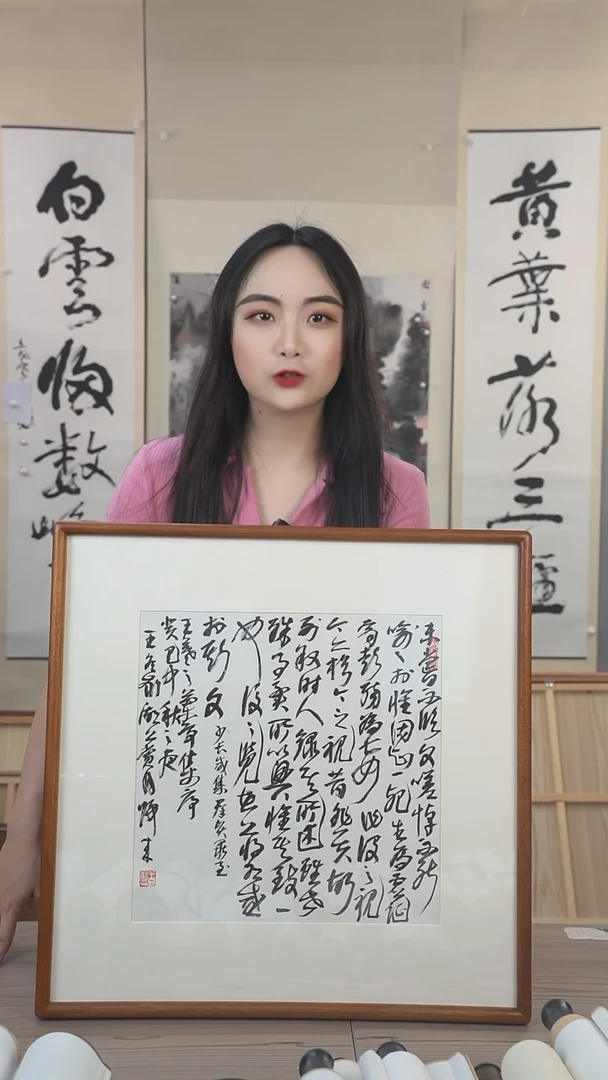 黃葉
三
白雲
數
未嘗不臨文嗟悼不能
喻之於懷固知一死生為虛誕
齊彭殤為妄作後之視
今亦猶今之視昔悲夫故
列敘時人錄其所述雖世
殊事異所以興懷其致一
也後之覽者亦將有感
於斯文
少長咸集群賢畢至
王羲之蘭亭集序
癸巳中秋之夜